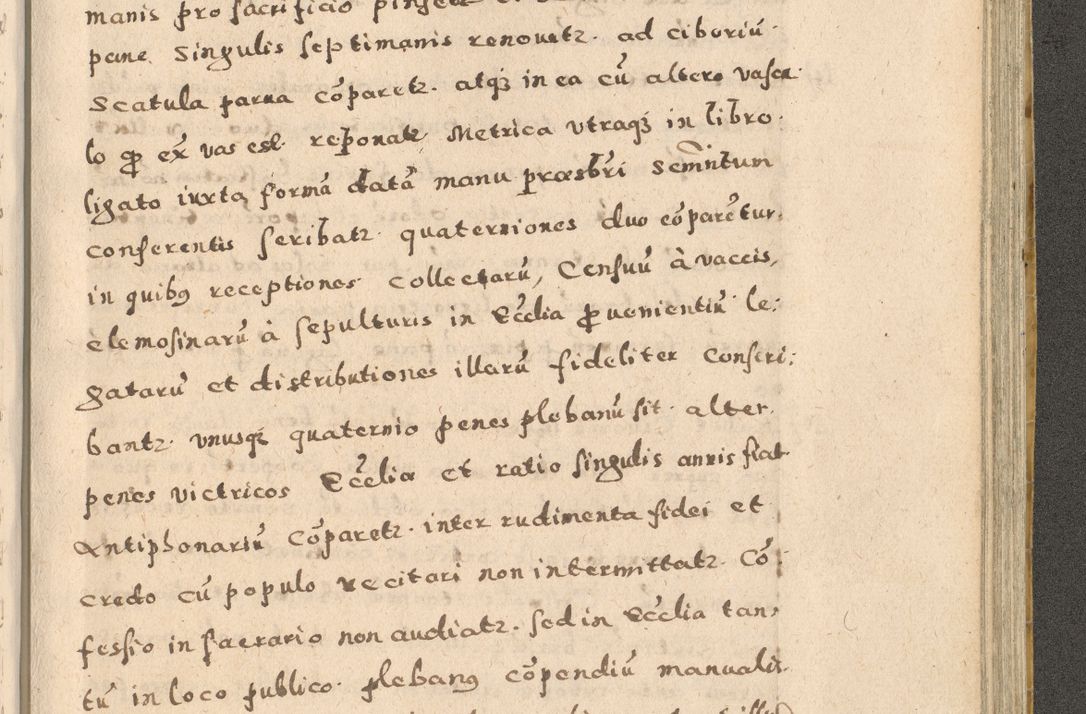 manis pro sacrificio
pane singulis septimanis renovetz. ad ciboriũ
Scatula parva cõparetz. atqz in ea cũ altero vascu
lo ꝓ ex̃ vas est. reponatz. Metrica vtraqz in libro
ligato iuxta formã datã manu præsbr̃i Semĩntum
conferentis scribatz. quaterniones duo cõparẽtur,
in quibꝰ receptiones collectarũ, Censuũ à vaccis,
elemosinarũ à sepulturis in Ecc̃lia ꝓuenientiũ le:
gatarũ et distributiones illarũ fideliter conscri:
bantz. vnusqz quaternio penes plebanũ sit. alter
penes victricos Ecc̃lia et ratio singulis annis fiat
Antiphonariũ Cõparetz. inter rudimenta fidei et
credo cũ populo recitari non intermittatz. Cõ:
fessio in sacrario non audiatz. sed in Ecc̃lia tan:
tũ in loco publico. plebanꝰ cõpendiũ manualis